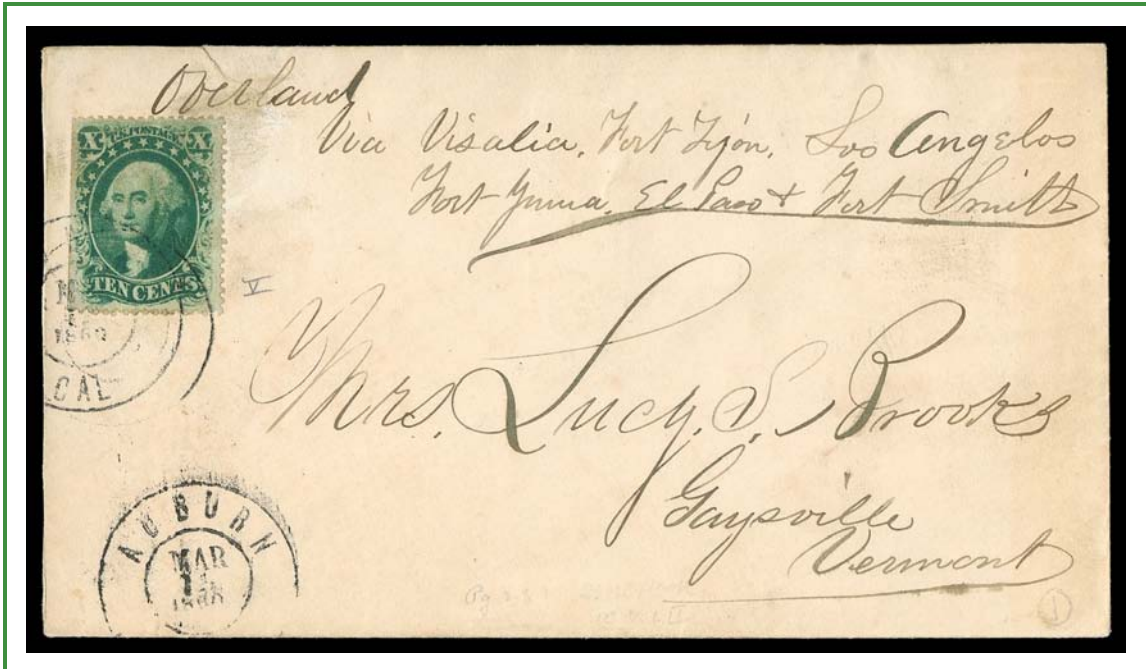 Overland
Via Visalia, Fort Tejon, Los Angelos
Fort Yuma, El Paso & Fort Smith
X U.S. POSTAGE X
TEN CENTS
V
CAL
Mrs. Lucy. S. Brooks
Gaysville
Vermont
AUBURN
MAR